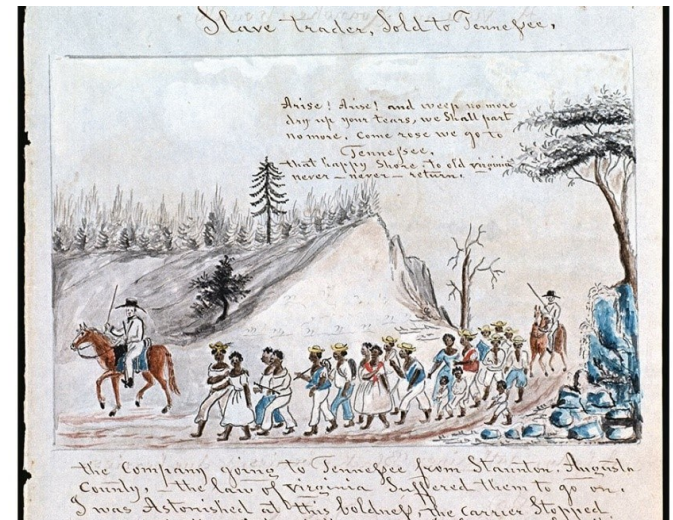 Slave trader, Sold to Tennessee,
Arise! Arise! and weep no more
dry up your tears, we Shall part
no more, Come rose we go to
Tennessee,
that happy Shore, to old virginia
never — never — return.
the Company going to Tennessee from Staunton, Augusta
County, — the law of virginia Suffered them to go on.
I was Astonished at this boldness, the carrier Stopped